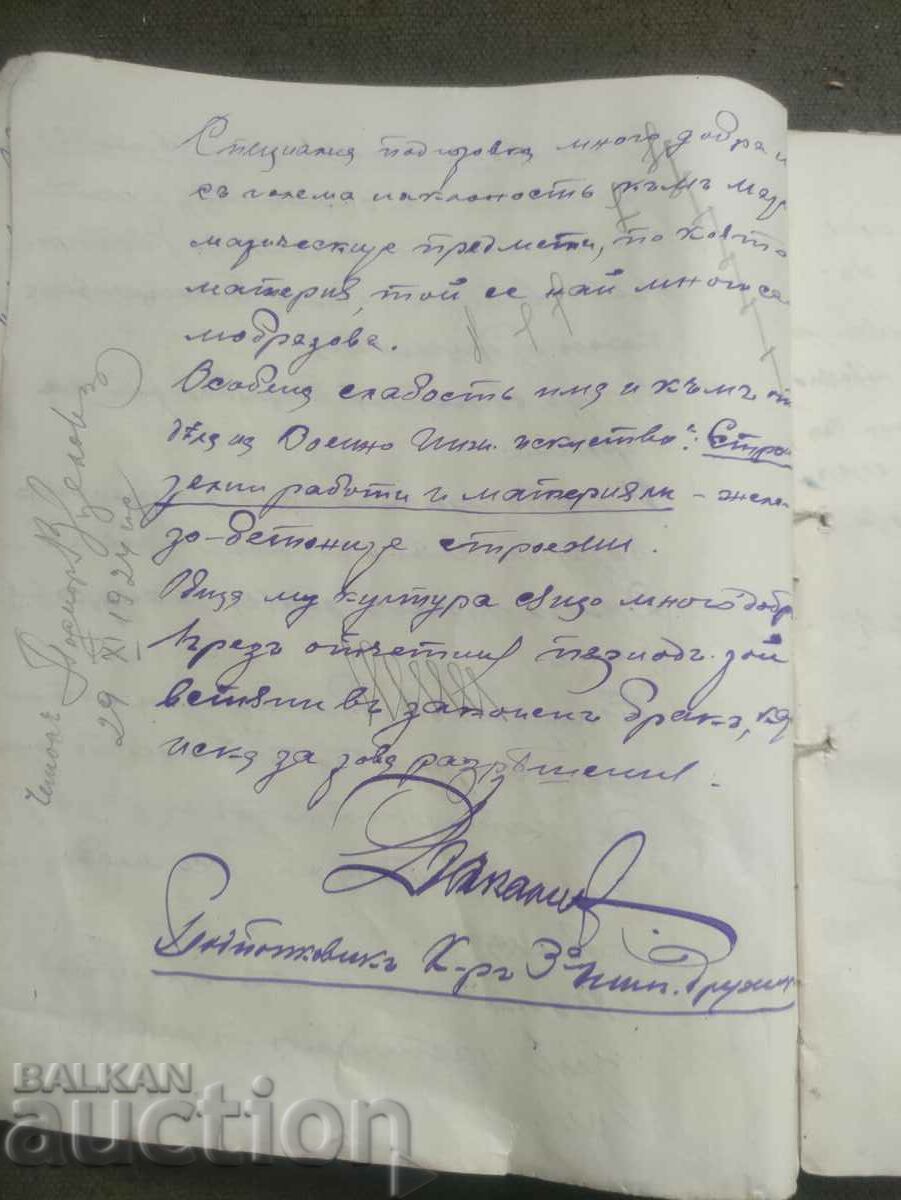 Специална подготовка много добра и
съ голема наклоность къмъ мате
матическите предмети, по която
материя, той се най много са
мобразова.
Особена слабость има и къмъ от
дѣла на Военно Инж. искуство: "Строи
телни работи и материяли - желе
зо-бетоните строежи.
Обща му култура също много добр
Презъ отчетния периодъ той
встѫпи въ законенъ бракъ,
иска за това разрѣшения.
Подполковникъ К-ръ 3а Инж. Дружин
Четохъ
29 XI 1924
BALKAN
auction